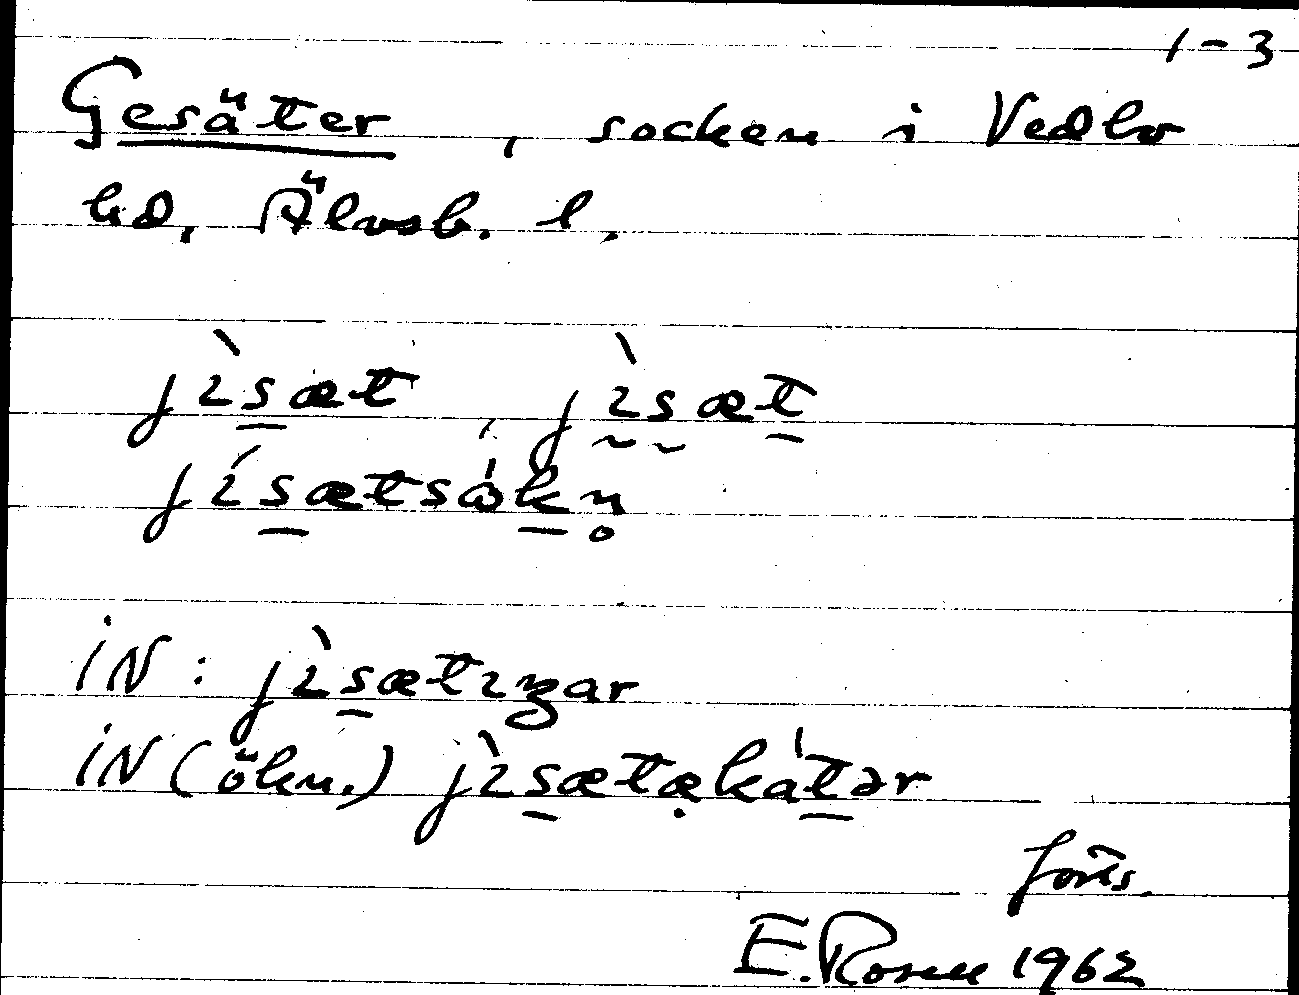 1-3
Gesäter, socken i Vedbo
hd, Älvsb. l.
jìsæt, jìsæt
jísætsò̍kn̥
iN: jìsætıŋar
iN (ökn.) jìsætækàtər
forts.
E. Rosell 1962